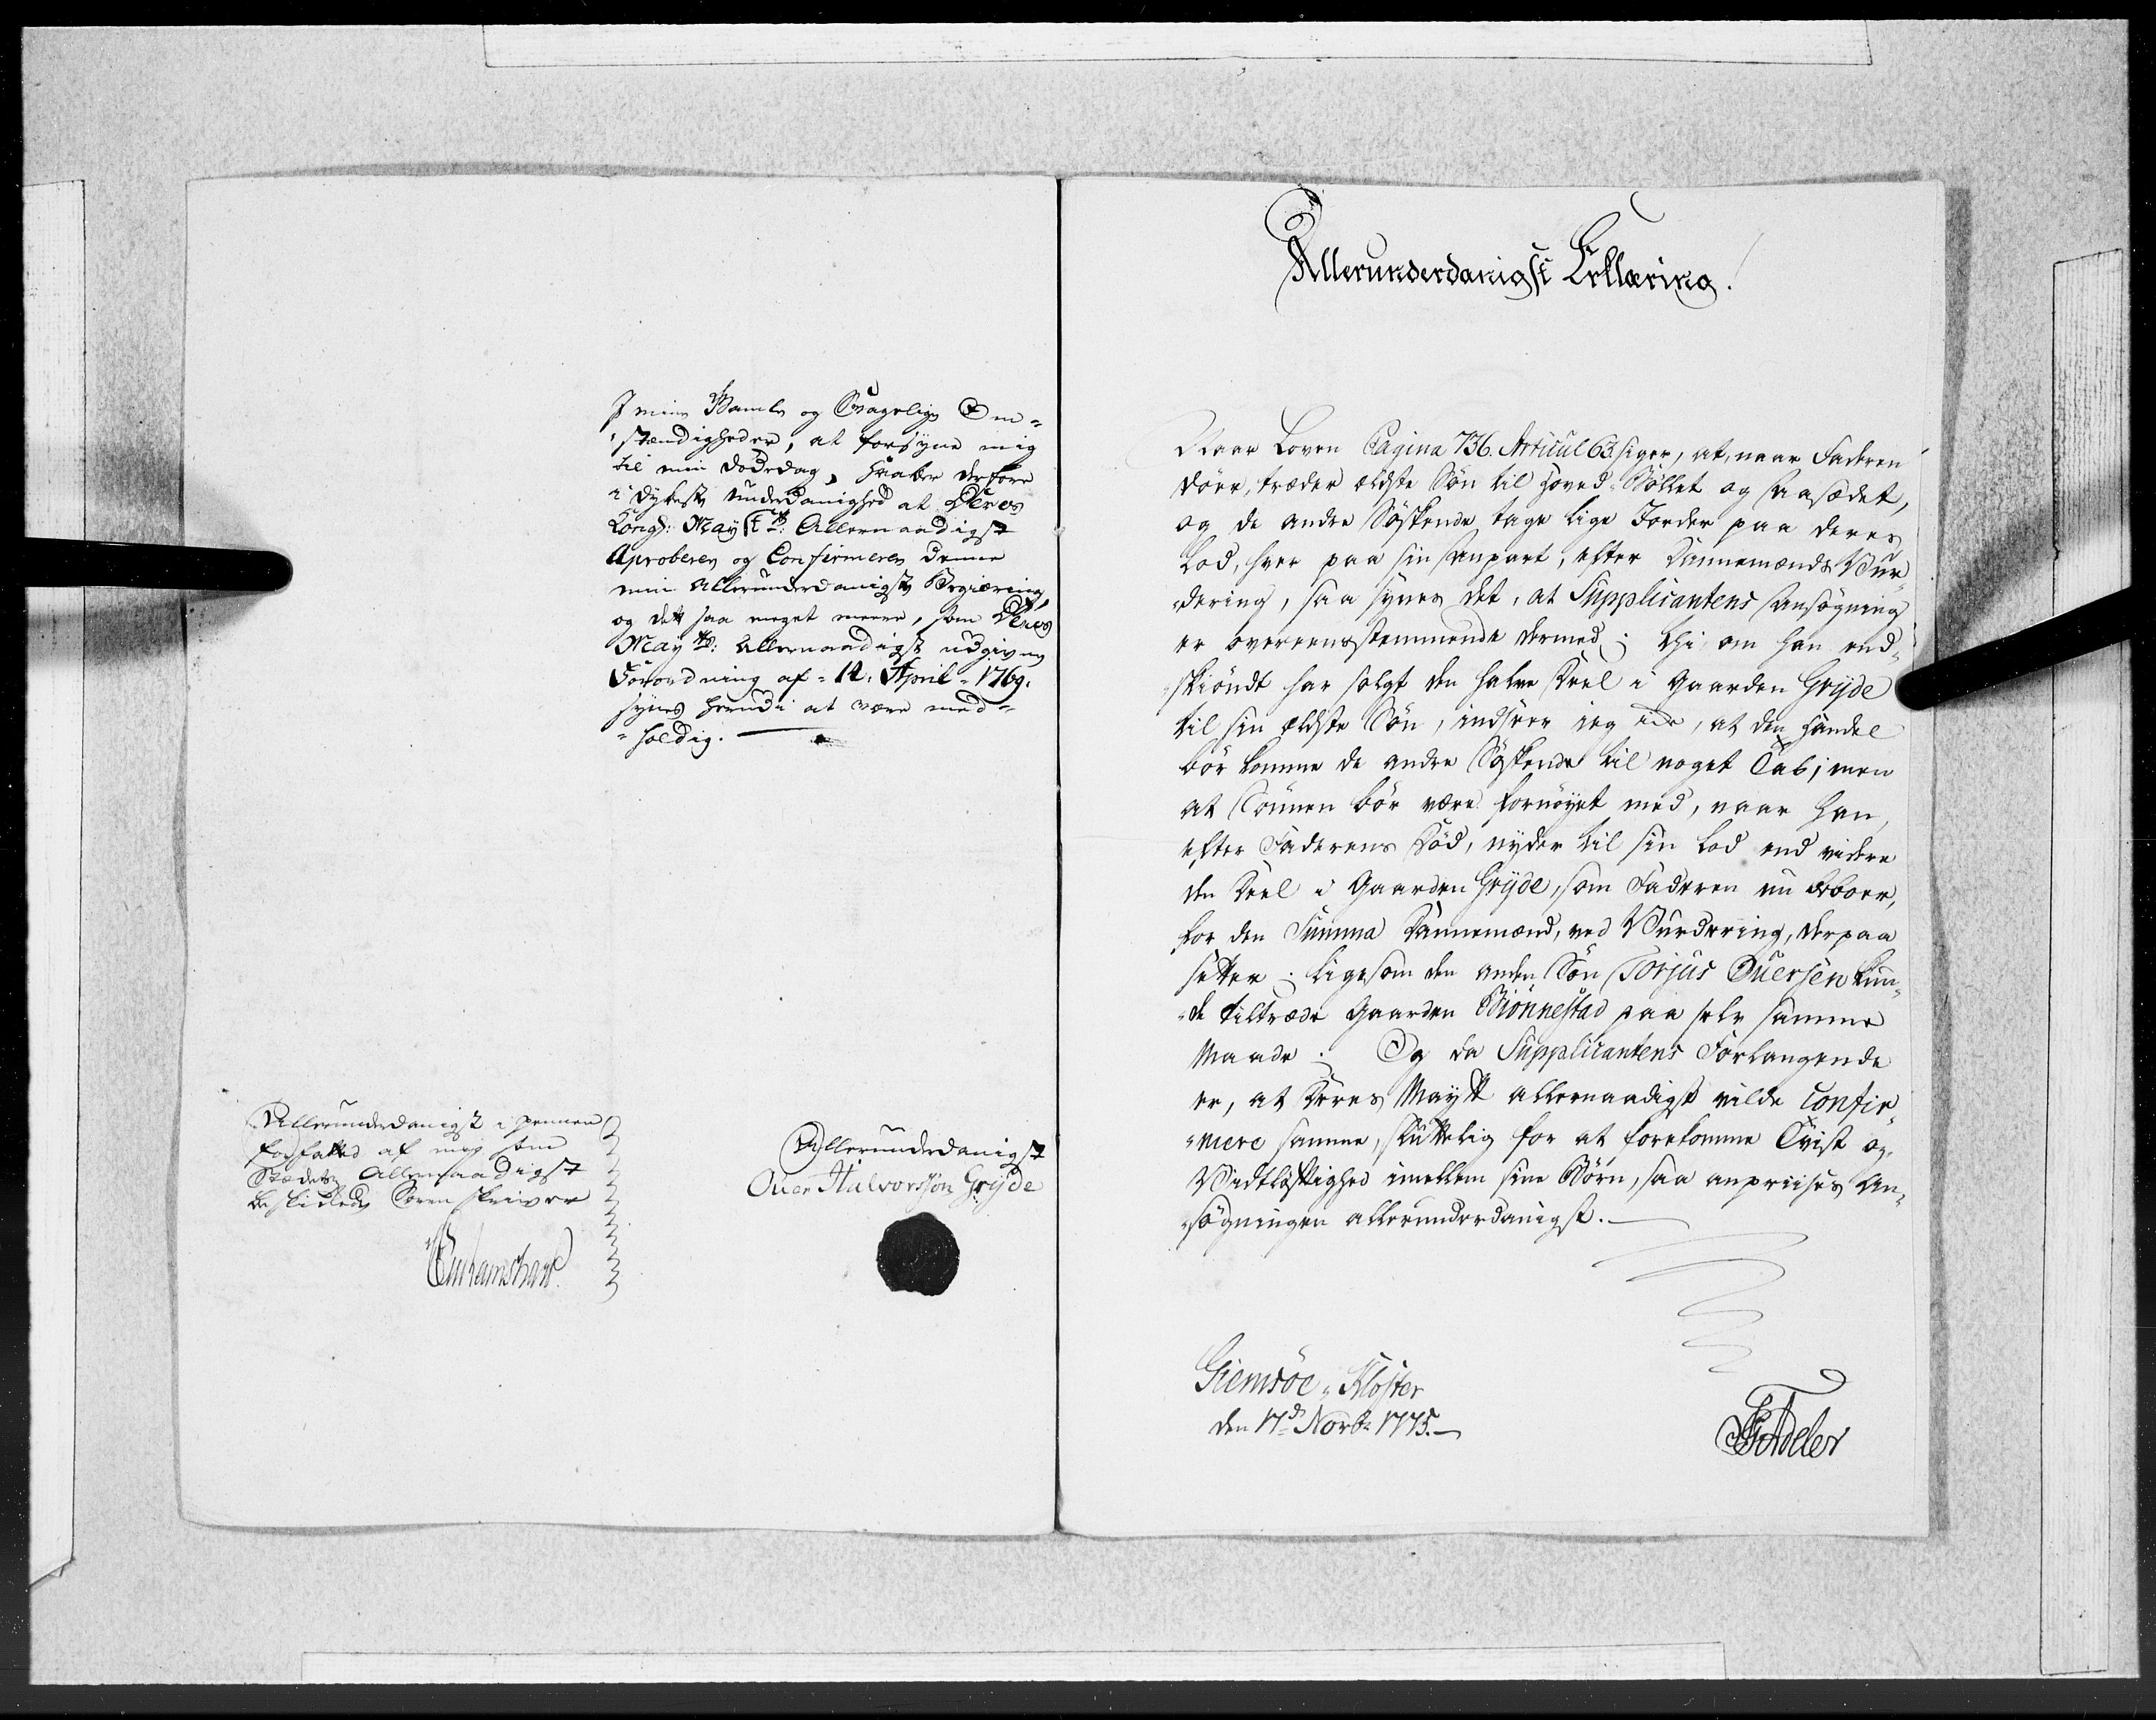 I mine Gamle og Svagelige Om-
-stændigheder, at forsyne mig
til min dødedag, hvarfor derfore
i dybeste underdanighed at Deres
Kongl: Mayst:ts Allernaadigst
Aproberer og Confirmerer denne
min Allerunderdanigste Begiæring,
og dette saa meget meere, som Deres
May:ts: Allernaadigst udgivne
Forordning af 14. April 1769.
synes herudi at være med-
-holdig.
Allerunderdanigst i pennen
forfatted af mig som
Stædets Allernaadigst
beskikkede Sorenskriver
Allerunderdanigst
Ouer Halvorssøn Gryde
Allerunderdanigst Erklæring.
Naar Loven Pagina 736. Articul 63. siger, at, naar Faderen
döer, træder ældste Søn til Hoved-Böllet og Aasædet,
og de andre Söskende tage lige Jorder paa deres
Lod, hver paa sin Anpart, efter Dannemænds Vur-
-dering, saa synes det, at Supplicantens Ansögning
er overeensstemmende dermed; thi om han end-
-skiöndt har solgt den halve Deel i Gaarden Gryde
til sin ældste Sön, indseer jeg ike, at den Handel
bör komme de andre Söskende til noget Tab; men
at Sönnen bör være fornöyet med, naar han,
efter Faderens Död, nyder til sin Lod end videre
den Deel i Gaarden Gryde, som Faderen nu beboer,
for den Summa Dannemænd, ved Vurdering, derpaa
setter; Ligesom den anden Sön Torjus Ouersen kun-
-de tiltræde Gaarden Biönnestad paa selv samme
Maade; Og da Supplicantens Forlangende
er, at Deres Maytt allernaadigst vilde Confir-
-mere samme, sluttelig for at forekomme Tvist og
Vidtløftighed imellem sine Börn, saa anpriises An-
-sögningen allerunderdanigst.
Giemsöe-Kloster
den 17d Novbr 1775.
Adeler